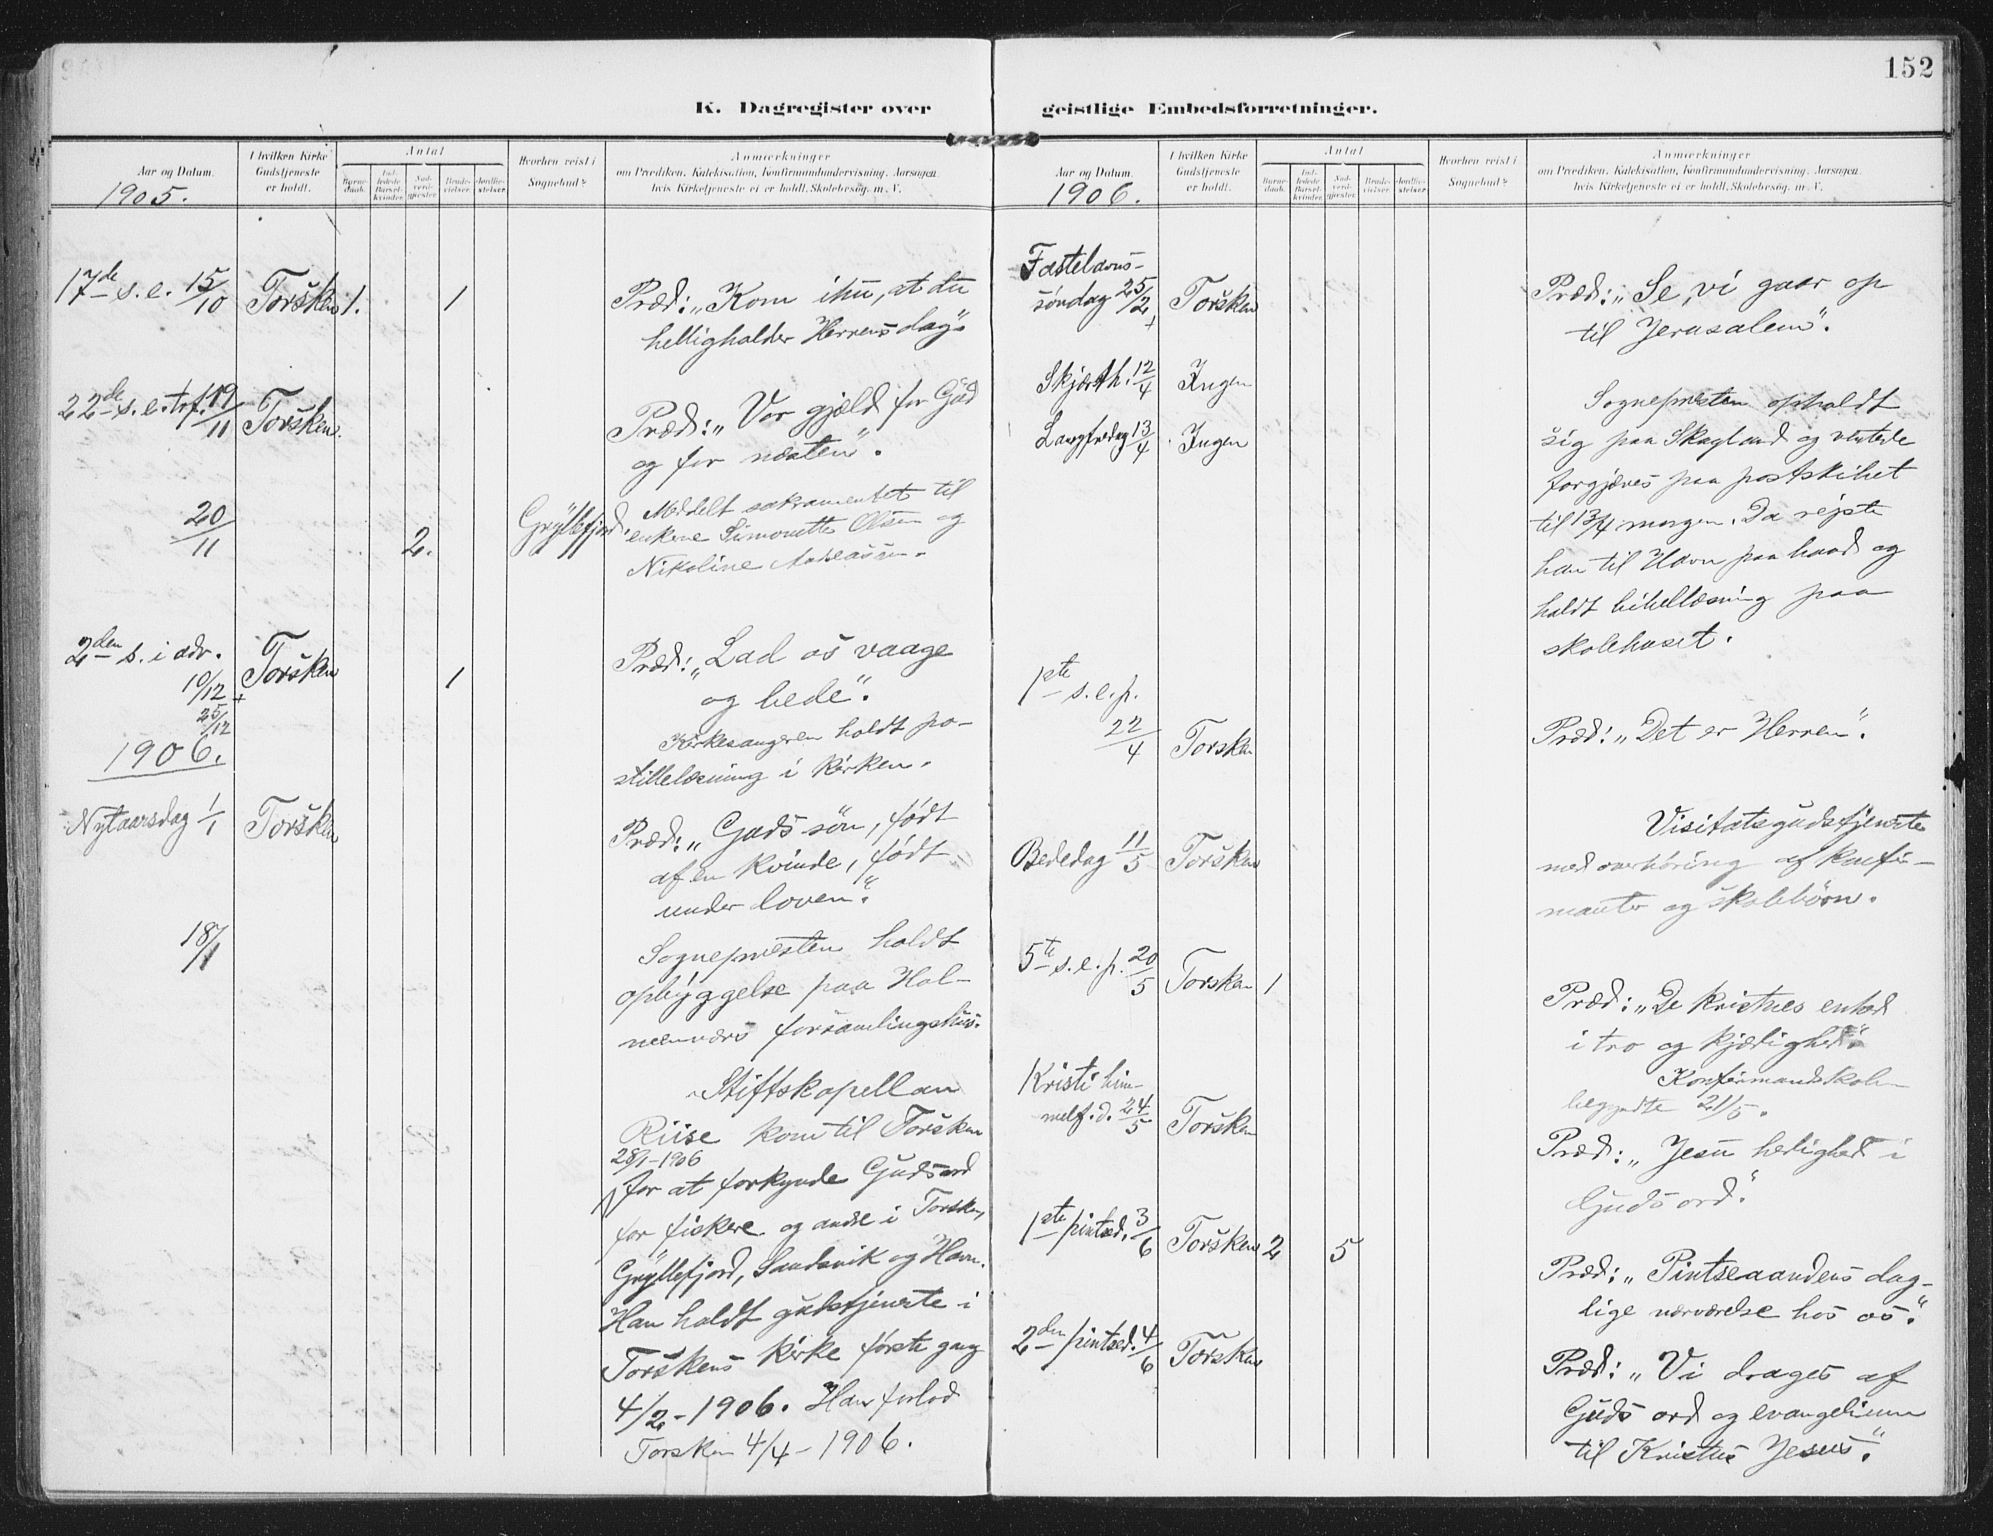 152
K. Dagregister over
geistlige Embedsforretninger.
Aar og Datum.
1905.
I hvilken Kirke
Gudstjeneste
er holdt.
Antal
Barne-
daab.
Ind-
ledede
Barsel-
kvinder.
Nad-
verd-
gjester.
Brude-
vielser.
Jordfæ-
stelser.
Hvorhen reist i
Sognebud?
Anmærkninger
om Prædiken, Katekisation, Konfirmandundervisning. Aarsagen,
hvis Kirketjeneste ei er holdt. Skolebesøg. m. V.
17de s.e. 15/10 Torsken 1. 1
Præd: „Kom ihu, at du
helligholder Herrens dag“
22de s.e. trf. 19/11 Torsken.
Præd: „Vor gjæld for Gud
og for næsten“.
20/11 2. Gryllefjord.
Meddelt sakramentet til
enkerne Simonette Olsen og
Nikoline Andreassen.
2den s. i adv.
10/12 Torsken 1
Præd: „Lad os vaage
og bede“.
25/12
Kirkesangeren holdt po-
stillelæsning i kirken.
1906.
Nytaarsdag 1/1 Torsken
Præd: „Guds søn, født
af en kvinde, født
under loven“.
18/1
Sognepresten holdt
opbyggelse paa Hol-
menværs forsamlingshus.
Stiftskapellan
Riise kom til Torsken
28/1-1906
for at forkynde Guds ord
for fiskere og andre i Torsken,
Gryllefjord, Sandsvik og Havn.
Han holdt gudstjeneste i
Torskens kirke første gang
4/2-1906. Han forlod
Torsken 4/4-1906.
Aar og Datum.
1906.
I hvilken Kirke
Gudstjeneste
er holdt.
Antal
Barne-
daab.
Ind-
ledede
Barsel-
kvinder.
Nad-
verd-
gjester.
Brude-
vielser.
Jordfæ-
stelser.
Hvorhen reist i
Sognebud?
Anmærkninger
om Prædiken, Katekisation, Konfirmandundervisning. Aarsagen,
hvis Kirketjeneste ei er holdt. Skolebesøg. m. V.
Fastelavns-
søndag 25/2 Torsken
Præd: „Se, vi gaar op
til Jerusalem“.
Skjærth. 12/4 Ingen
Langfredag 13/4 Ingen
Sognepresten opholdt
sig paa Skagland og ventede
forgjæves paa postskibet
til 13/4 morgen. Da rejste
han til Havn paa baad og
holdt bibellæsning paa
skolehuset.
1ste s.e.p.
22/4 Torsken
Præd: „Det er Herren“.
Bededag 11/5 Torsken
Visitatsgudstjeneste
med overhøring af konfir-
manter og skolebørn.
5te s.e.p. 20/5 Torsken 1
Præd: „De kristnes enhed
i tro og kjærlighed“.
Konfirmandskolen
begyndte 21/5.
Kristi him-
melf.d. 24/5 Torsken
Præd: „Jesu herlighed i
Guds ord“.
1ste pintsed. 3/6 Torsken 2 5
Præd: „Pintseaandens dag-
lige nærværelse hos os“.
2den pintsed. 4/6 Torsken
Præd: „Vi drages af
Guds ord og evangelium
til Kristus Jesus“.